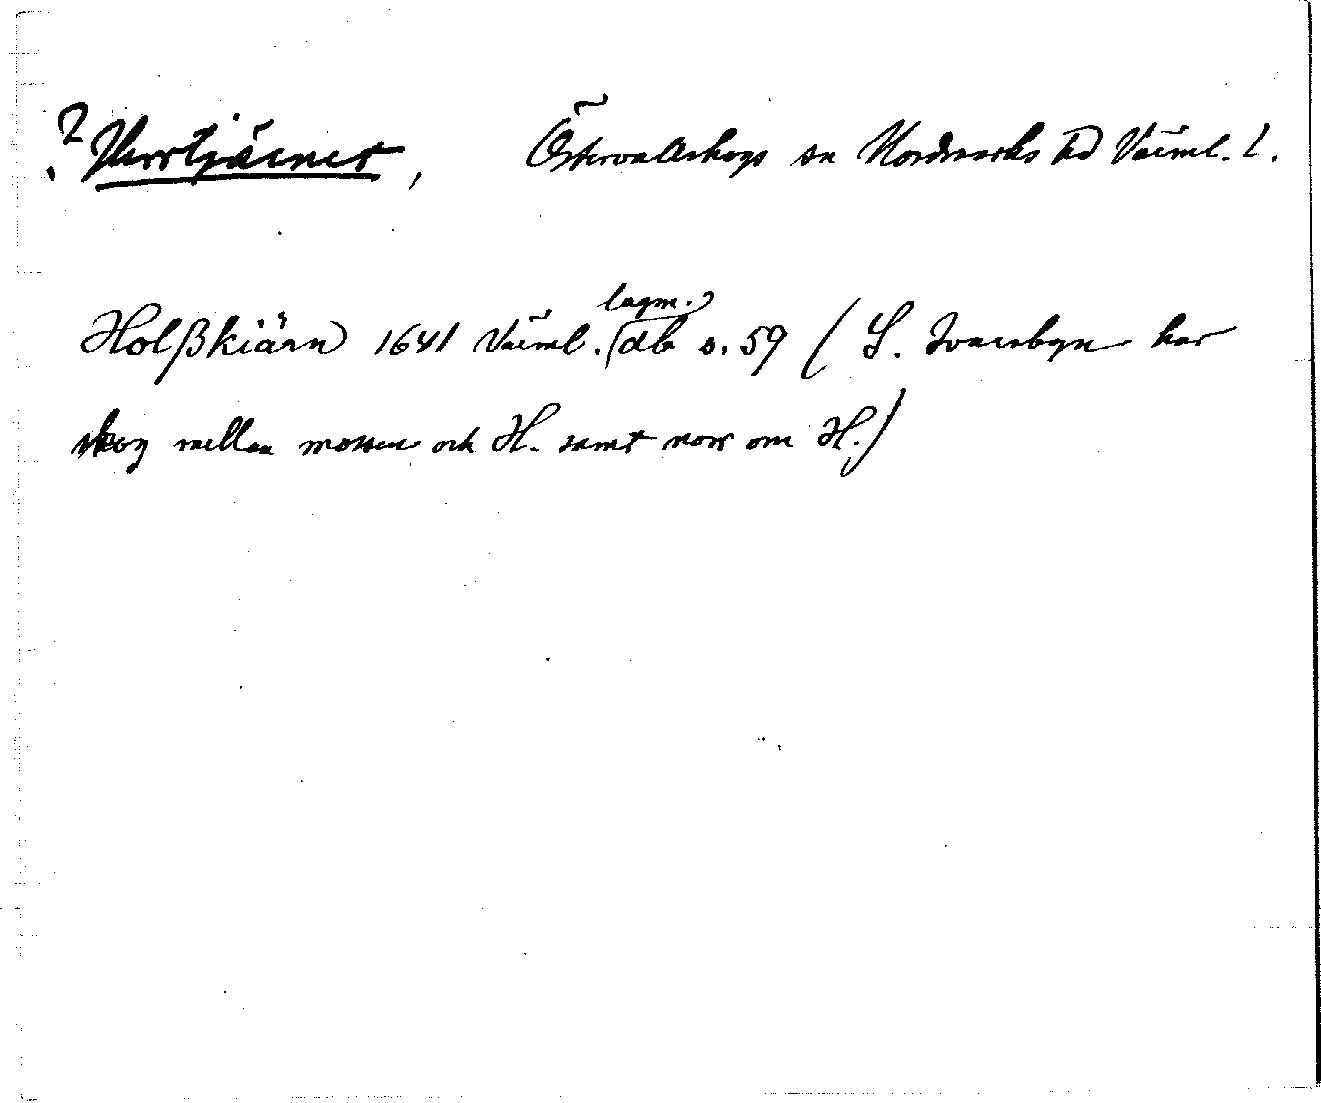 ? Herrtjärnet, Östervallskogs sn Nordmarks hd Värml. l.
lagm.
Holßkiärn 1641 Värml. db s. 59 (S. Ivarsbyn har
skog mellan mossen och H. samt norr om H.)